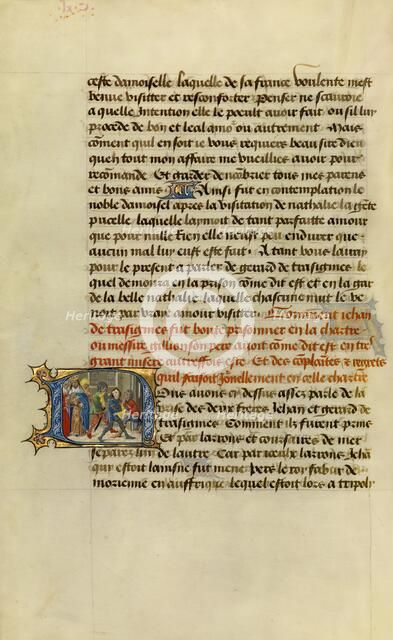 ceste damoiselle laquelle de sa france voulente mest
venue visitter et resconforter Penser ne scauroie
a quelle Intention elle le poeult avoir fait ou sil luy
procede de bon et leal amour ou autrement Mais
coment quil en soit ie vous requiers beau sire dieu
que tout mon affaire me vueillies avoir pour
recomande Et garder dencombrier tous mes parens
et bons amis Ainsi fut en contemplation le
noble damoisel apres la visitation de nathalie la gente
pucelle laquelle laymoit de tant parfaitte amour
que pour nulle Rien elle neust peu endurer que
aucun mal luy eust este fait A tant vous lairay
pour le present a parler de gerard de trasignies le
quel demoura en la prison come dit est et en la gar
de la belle nathalie laquelle chascune nuit le ve
noit par vraye amour visitter Comment iehan
de trasignies fut boute prisonner en la chartre
ou messire gillion son pere avoit come dit est en tres
grant misere autreffois este Et des complaites et regretz
quil faisoit Jonellement en celle chartre
Nous avons cy dessus assez parle de la
prise des deux freres Jehan et gerard de
trasignies Comment ilz furent prins
Et par larrons et coursaires de mer
separez lun de lautre Car par iceulx larrons Jeha
qui estoit laisne fut mene vers le roy fabur de
morienne en auffrique lequel estoit lors a tripoly
Heritage
Heritage
Heritage